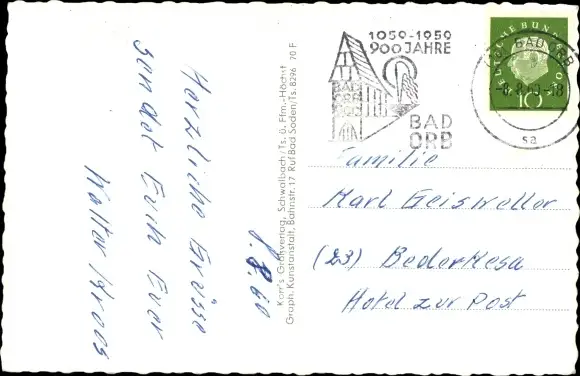 Herzliche Grüsse
sendet Euch Euer
Walter
8.8.60
Korr's Großverlag, Schwalbach/Ts. ü. Ffm.-Höchst
Graph. Kunstanstalt, Bahnstr. 17 Ruf Bad Soden/Ts. 8296 70 F
1059-1959
900 JAHRE
BAD
ORB
BAD
ORB
DEUTSCHE BUNDESPOST
10
BAD ORB
-8.8.60-18
sa
Familie
Karl Geisweller
(23) Bederkesa
Hotel zur Post